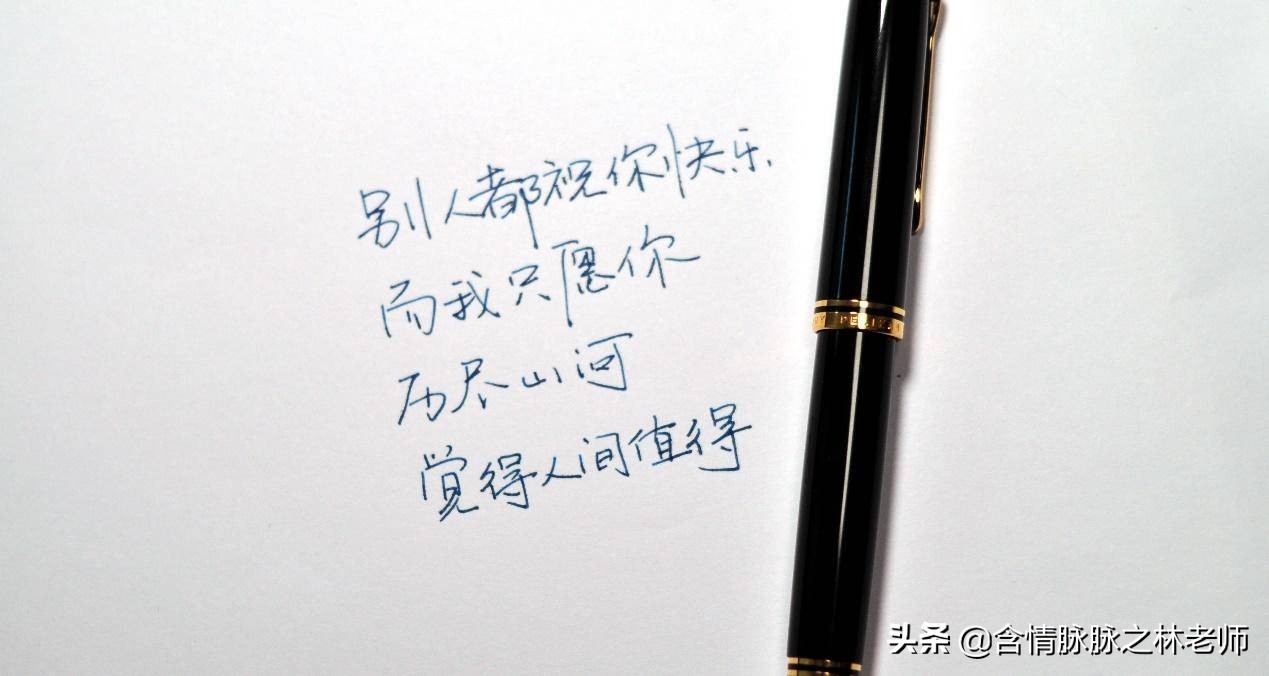 别人都祝你快乐
而我只愿你
历尽山河
觉得人间值得
头条 @含情脉脉之林老师